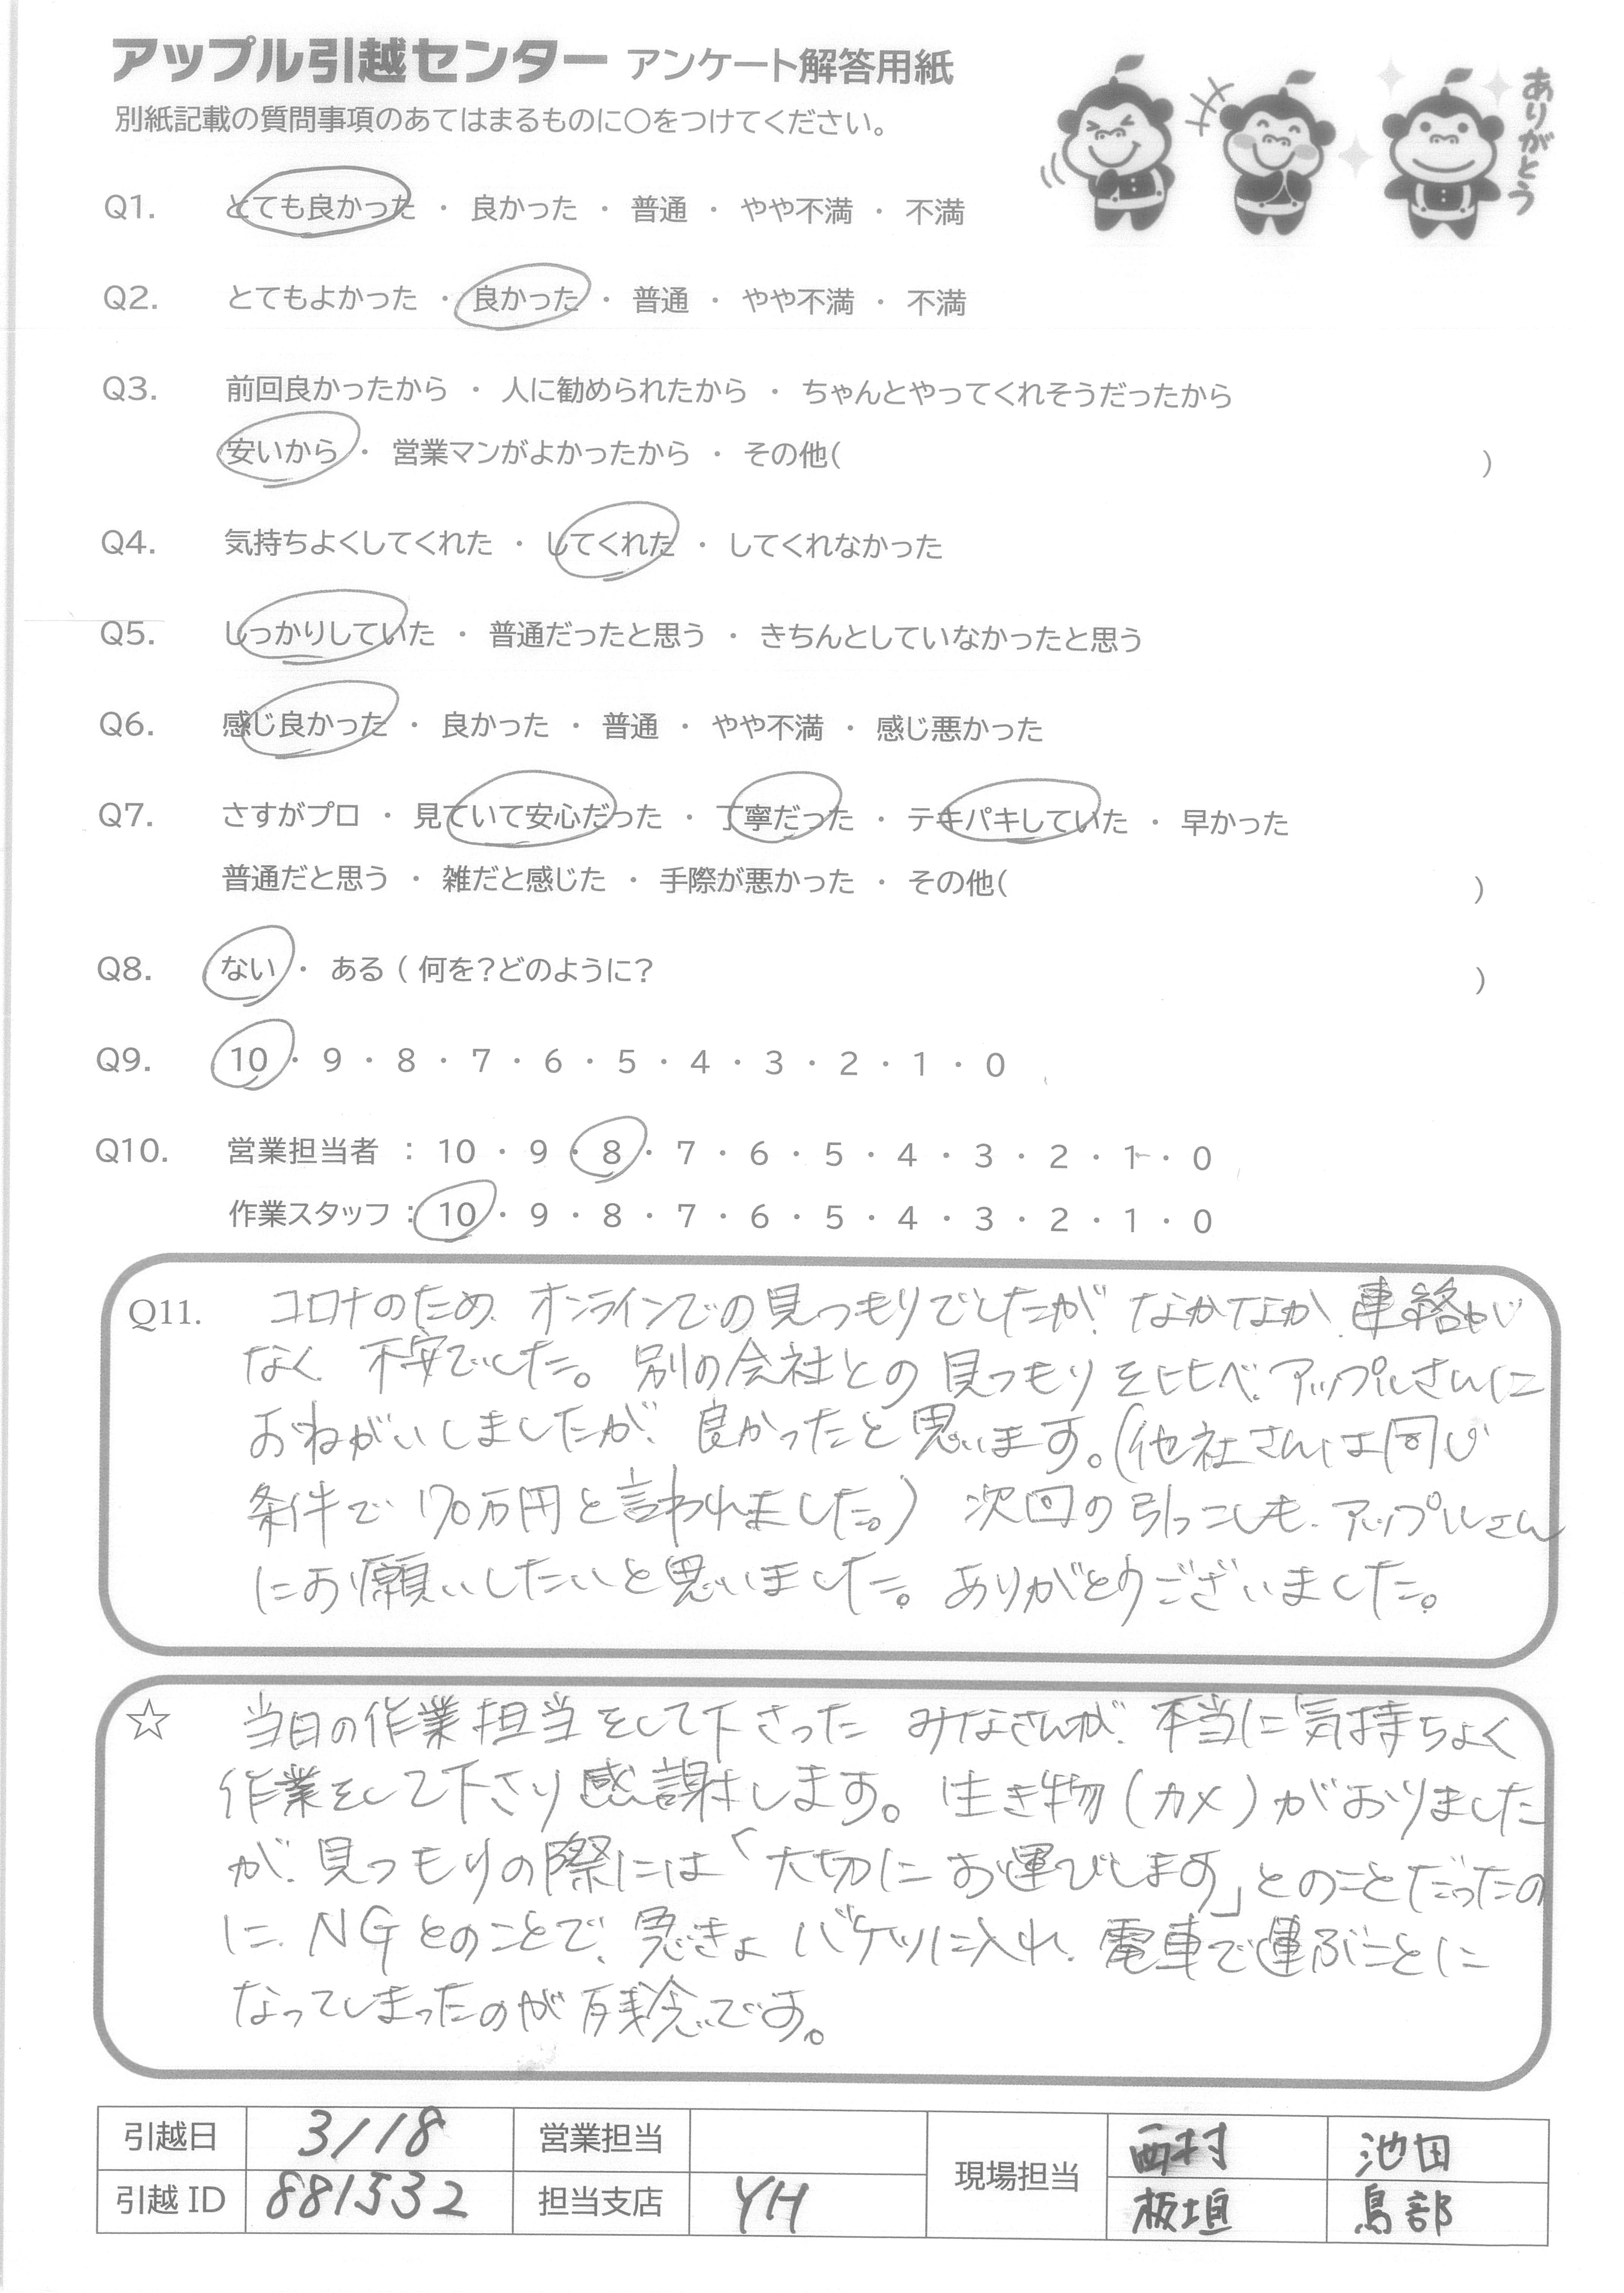 アップル引越センター アンケート解答用紙
別紙記載の質問事項のあてはまるものに○をつけてください。
ありがとう
Q1. とても良かった ・ 良かった ・ 普通 ・ やや不満 ・ 不満
Q2. とてもよかった ・ 良かった ・ 普通 ・ やや不満 ・ 不満
Q3. 前回良かったから ・ 人に勧められたから ・ ちゃんとやってくれそうだったから
安いから ・ 営業マンがよかったから ・ その他( )
Q4. 気持ちよくしてくれた ・ してくれた ・ してくれなかった
Q5. しっかりしていた ・ 普通だったと思う ・ きちんとしていなかったと思う
Q6. 感じ良かった ・ 良かった ・ 普通 ・ やや不満 ・ 感じ悪かった
Q7. さすがプロ ・ 見ていて安心だった ・ 丁寧だった ・ テキパキしていた ・ 早かった
普通だと思う ・ 雑だと感じた ・ 手際が悪かった ・ その他( )
Q8. ない ・ ある ( 何を?どのように? )
Q9. 10 ・ 9 ・ 8 ・ 7 ・ 6 ・ 5 ・ 4 ・ 3 ・ 2 ・ 1 ・ 0
Q10. 営業担当者 : 10 ・ 9 ・ 8 ・ 7 ・ 6 ・ 5 ・ 4 ・ 3 ・ 2 ・ 1 ・ 0
作業スタッフ : 10 ・ 9 ・ 8 ・ 7 ・ 6 ・ 5 ・ 4 ・ 3 ・ 2 ・ 1 ・ 0
Q11. コロナのため、オンラインでの見つもりでしたが、なかなか連絡が
なく、不安でした。別の会社との見つもりを比べ、アップルさんに
おねがいしましたが、良かったと思います。(他社さんは同じ
条件で170万円と言われました。) 次回の引っこしも、アップルさん
にお願いしたいと思いました。ありがとうございました。
☆ 当日の作業担当をして下さったみなさんが、本当に気持ちよく
作業をして下さり感謝します。生き物(カメ)がおりました
が、見つもりの際には「大切にお運びします」とのことだったの
に、NGとのことで、急きょバケツに入れ、電車で運ぶことに
なってしまったのが残念です。
引越日 3/18 営業担当 現場担当 西村 池田
引越ID 881532 担当支店 YH 板垣 鳥部